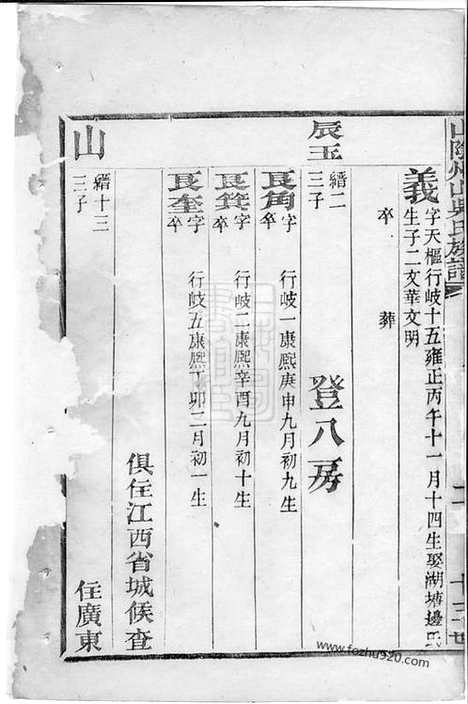 山陰州山吳氏族譜
二
十三世
義
字天樞行岐十五雍正丙午十一月十四生娶湖塘邊氏
生子二文華文明
卒 葬
登八房
辰玉
縉二
三子
良角
字 行岐一康熙庚申九月初九生
卒
良箕
字 行岐二康熙辛酉九月初十生
卒
良奎
字 行岐五康熙丁卯三月初一生
卒
俱住江西省城候查
山
縉十三
三子
住廣東
www.fozhu920.com